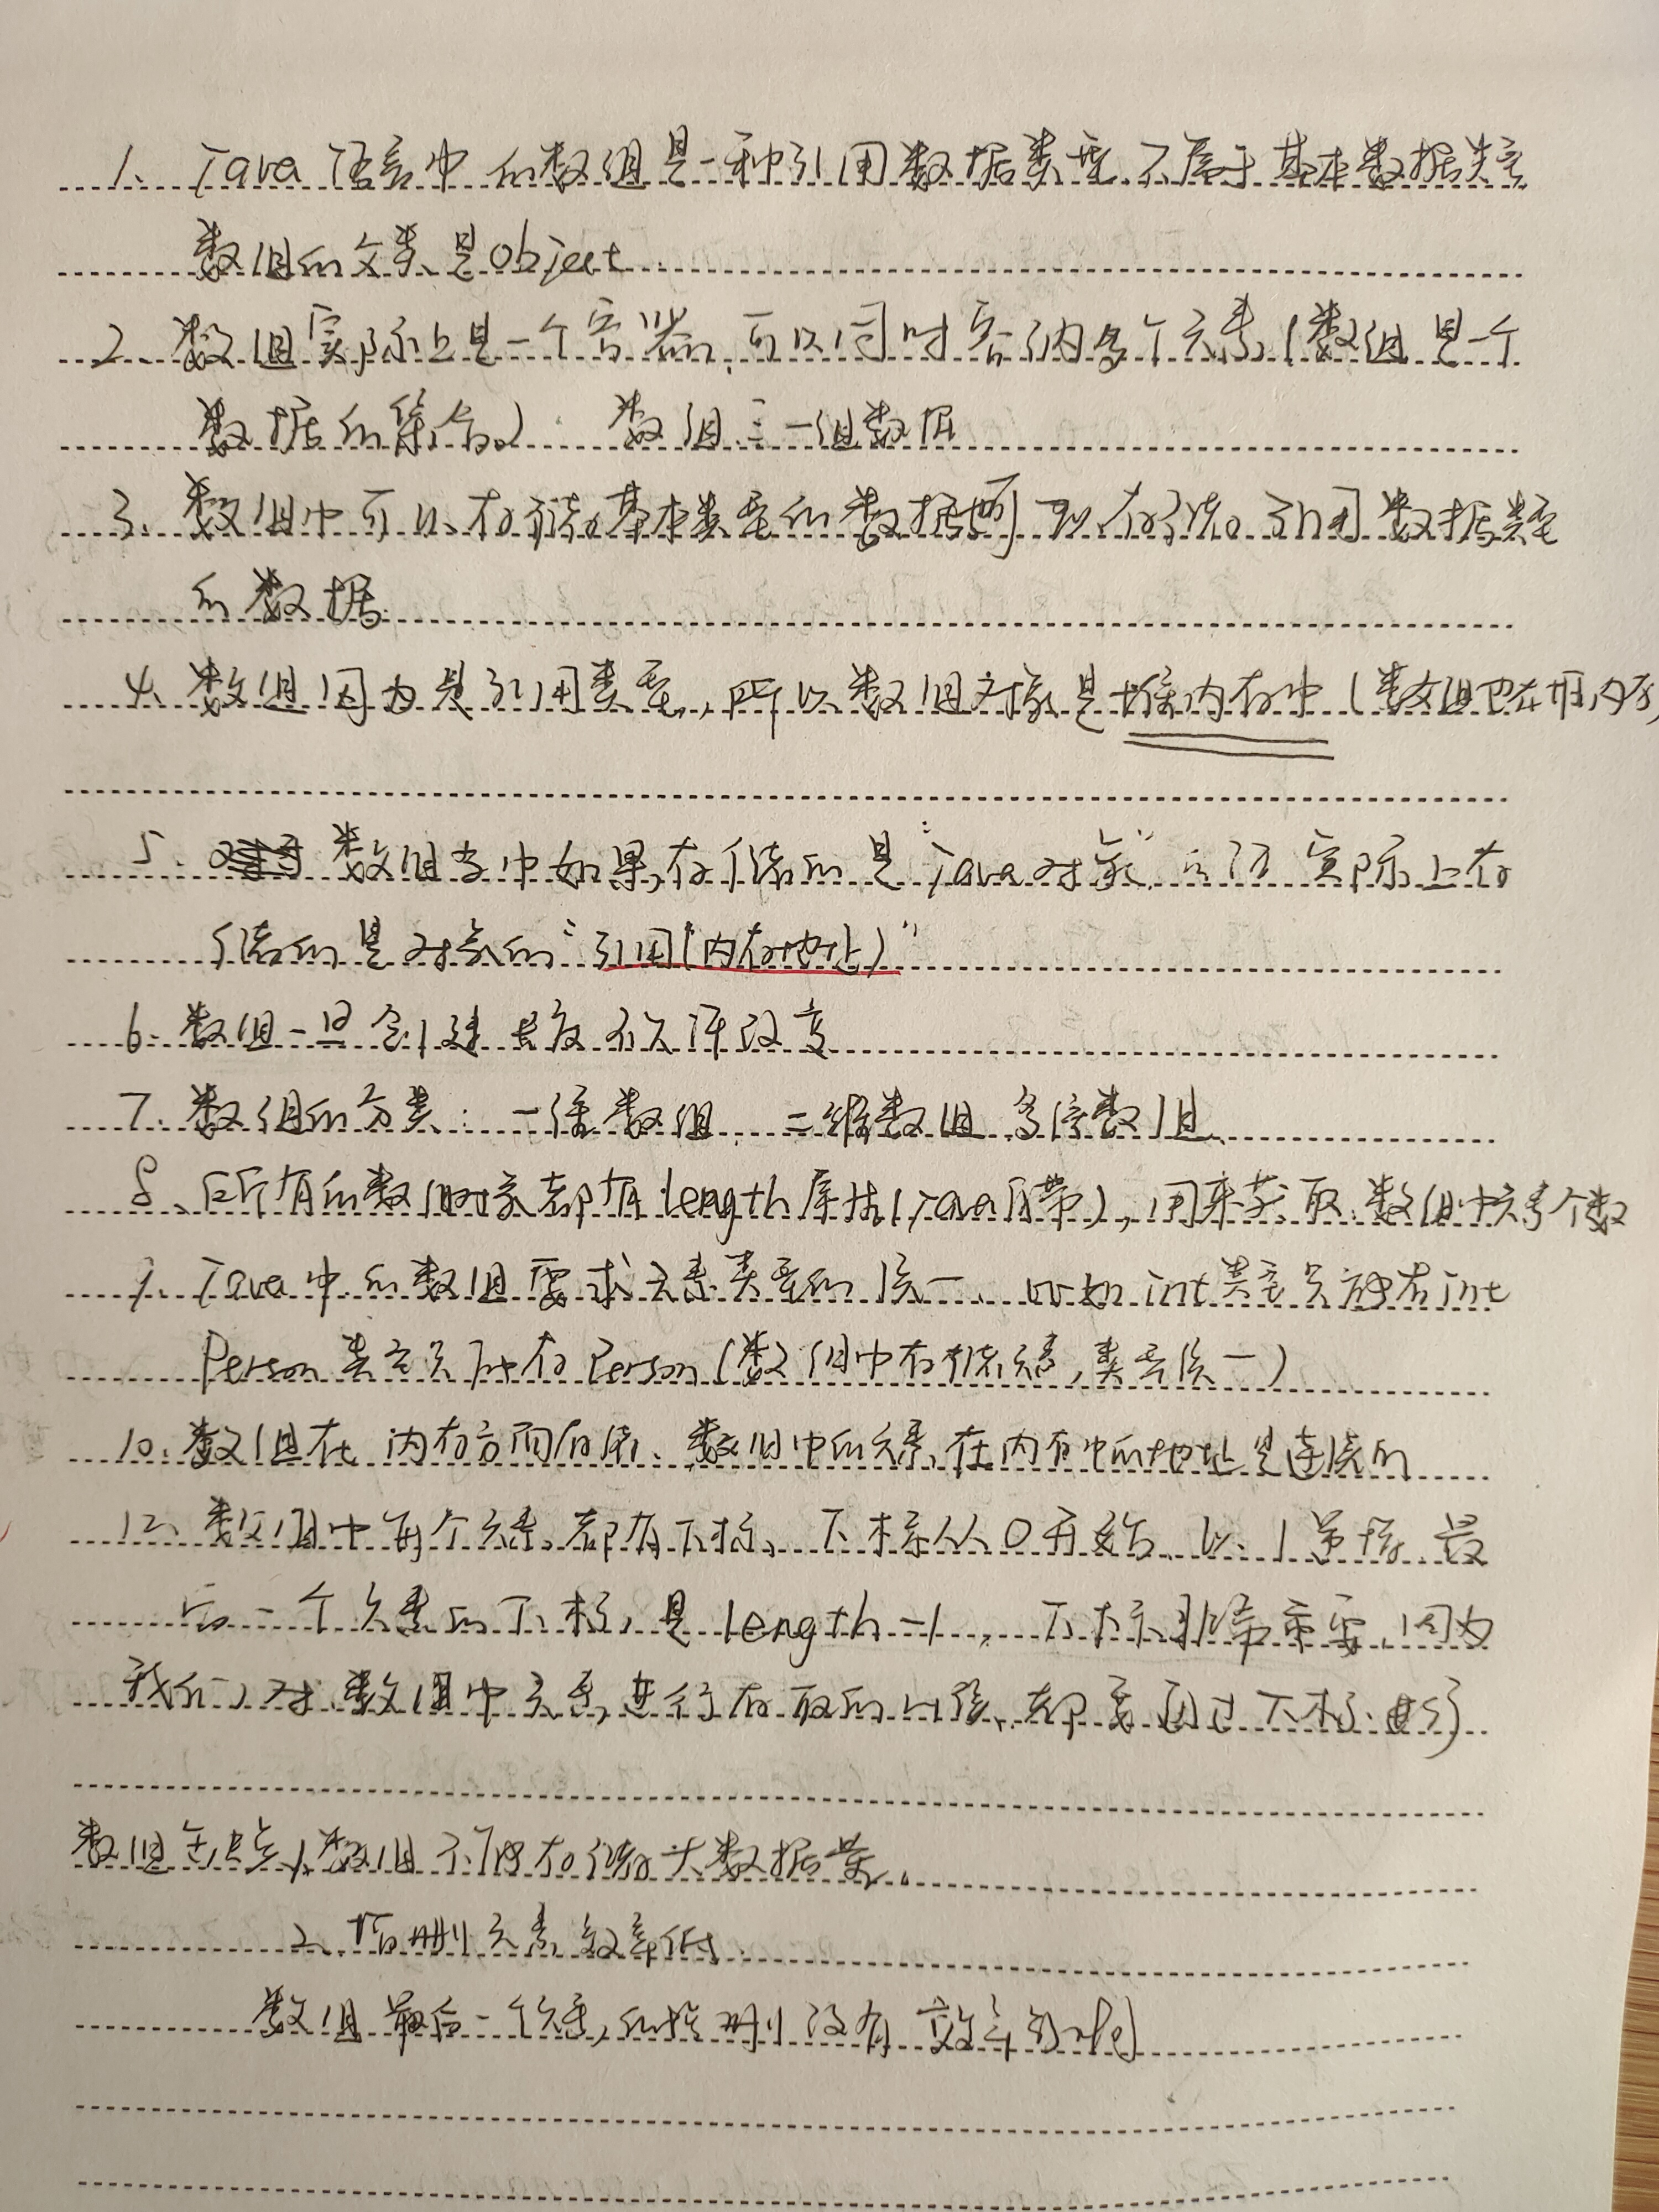 1、Java语言中的数组是一种引用数据类型.不属于基本数据类型
数组的父类是Object
2、数组实际上是一个容器,可以同时容纳多个元素(数组是一个
数据的集合) 数组:一组数据
3、数组中可以存储基本类型的数据 可以存储引用数据类型
的数据
4、数组因为是引用类型,所以数组对象是堆内存中(数组也在堆内存
5、数组当中如果存储的是"Java对象"的话 实际上存
储的是对象的"引用(内存地址)"
6、数组一旦创建长度不允许改变
7、数组的分类:一维数组、二维数组 多维数组
8、所有的数组对象都有length属性(Java自带),用来获取数组中元素个数
9、Java中的数组要求元素类型的统一、比如int类型只能存int
Person类型只能存Person(数组中存储元素,类型统一)
10、数组在内存方面存储、数组中的元素在内存中的地址是连续的
12、数组中每个元素都有下标、下标从0开始、以1递增 最
后一个元素的下标是length-1,下标非常重要,因为
我们对数组中元素进行存取的时候,都要通过下标进行
数组缺点1、数组不能存储大数据量。
2、增删元素效率低
数组最后一个元素的增删没有效率影响